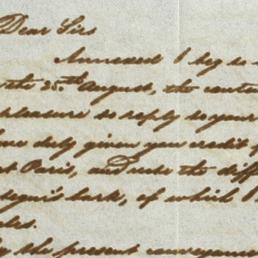 Dear Sirs
Annexed I beg to
the 25th August, the
pleasure to reply to your
duly given you credit f
Paris, and note the diff
of which I
the present conveyanc